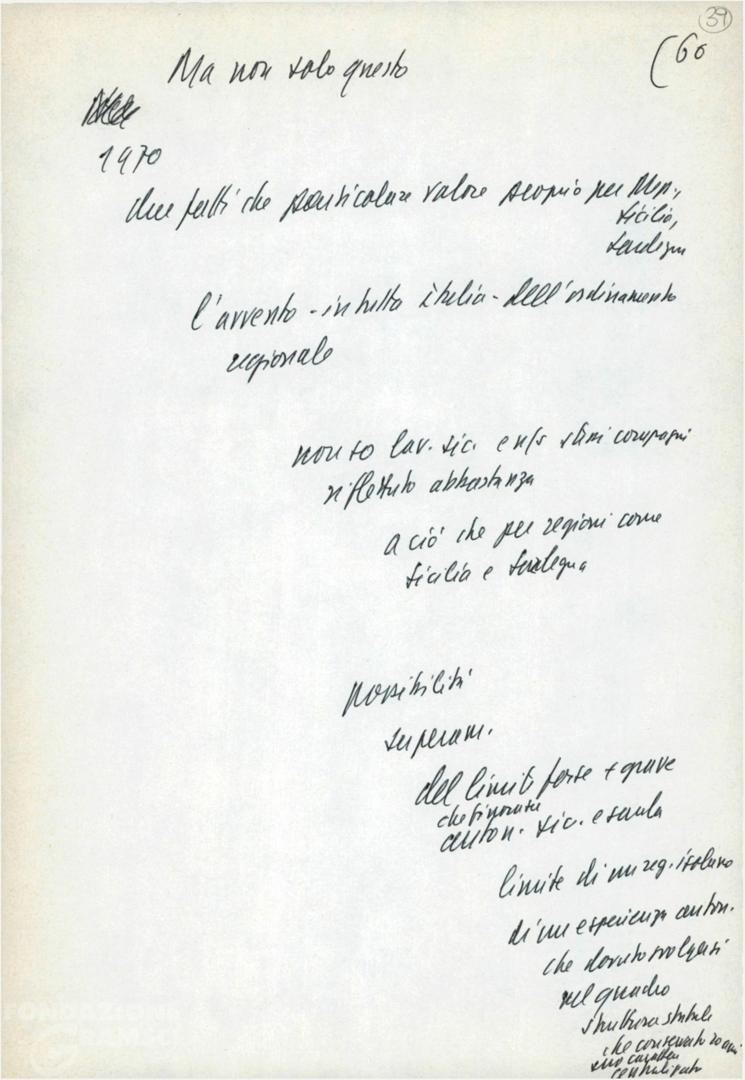 39
(60
Ma non solo questo
1970
due fatti che particolare valore proprio per Mep.,
Sicilia,
Sardegna
l'avvento - in tutta Italia - dell'ordinamento
regionale
non so lav. sic. e n/s compagni
riflettuto abbastanza
a ciò che per regioni come
Sicilia e Sardegna
possibilità
superam.
del limite forse + grave
che finora
auton. sic. e sarda
limite di un reg. isolano
di un esperienza auton.
che dovuto svolgersi
nel quadro
struttura statale
che conservato 20 anni
suo carattere
centralizzato
FONDAZIONE